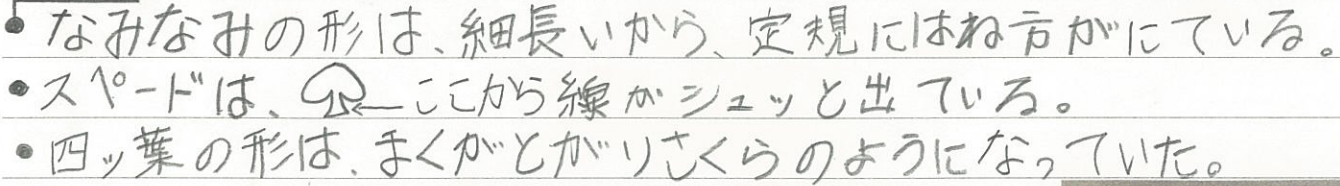 ・なみなみの形は、細長いから、定規にはね方がにている。
・スペードは、ここから線がシュッと出ている。
・四ッ葉の形は、まくがとがりさくらのようになっていた。